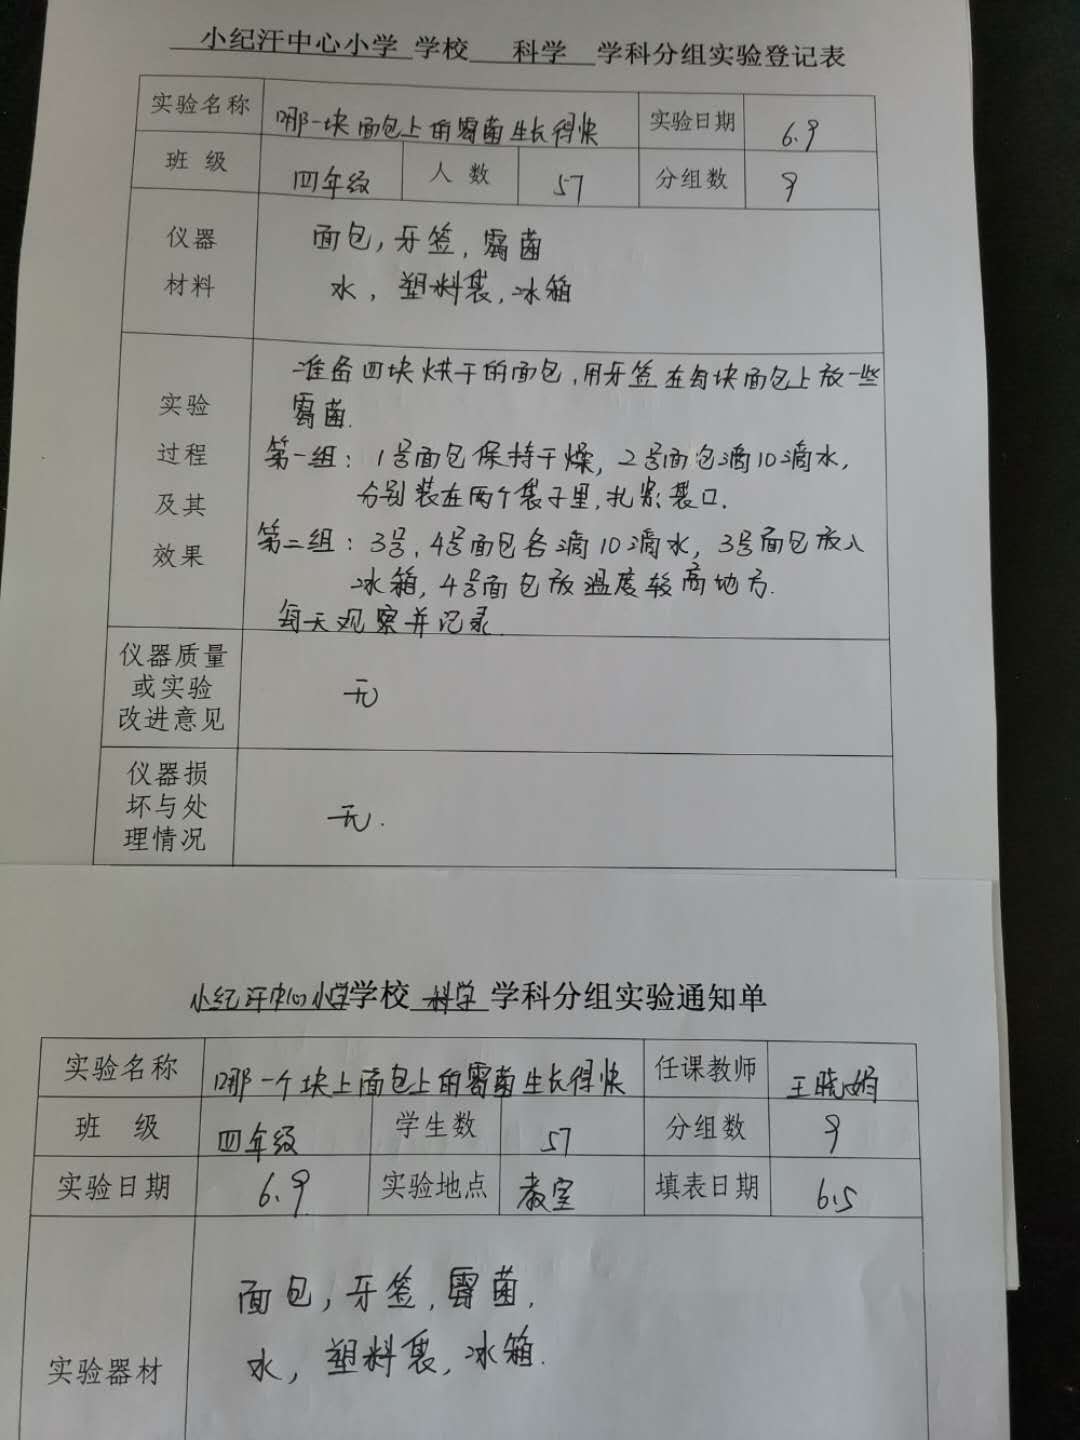 小纪汗中心小学 学校 科学 学科分组实验登记表
实验名称 哪一块面包上的霉菌生长得快 实验日期 6.9
班 级 四年级 人 数 57 分组数 9
仪器 面包,牙签,霉菌
材料 水,塑料袋,冰箱
准备四块烘干的面包,用牙签在每块面包上放一些
实验 霉菌.
过程 第一组:1号面包保持干燥,2号面包滴10滴水,
及其 分别装在两个袋子里,扎紧袋口.
效果 第二组:3号,4号面包各滴10滴水,3号面包放入
冰箱,4号面包放温度较高地方.
每天观察并记录.
仪器质量
或实验 无
改进意见
仪器损
坏与处 无.
理情况
小纪汗中心小学学校 科学 学科分组实验通知单
实验名称 哪一个块上面包上的霉菌生长得快 任课教师 王晓娟
班 级 四年级 学生数 57 分组数 9
实验日期 6.9 实验地点 教室 填表日期 6.5
面包,牙签,霉菌,
水,塑料袋,冰箱.
实验器材